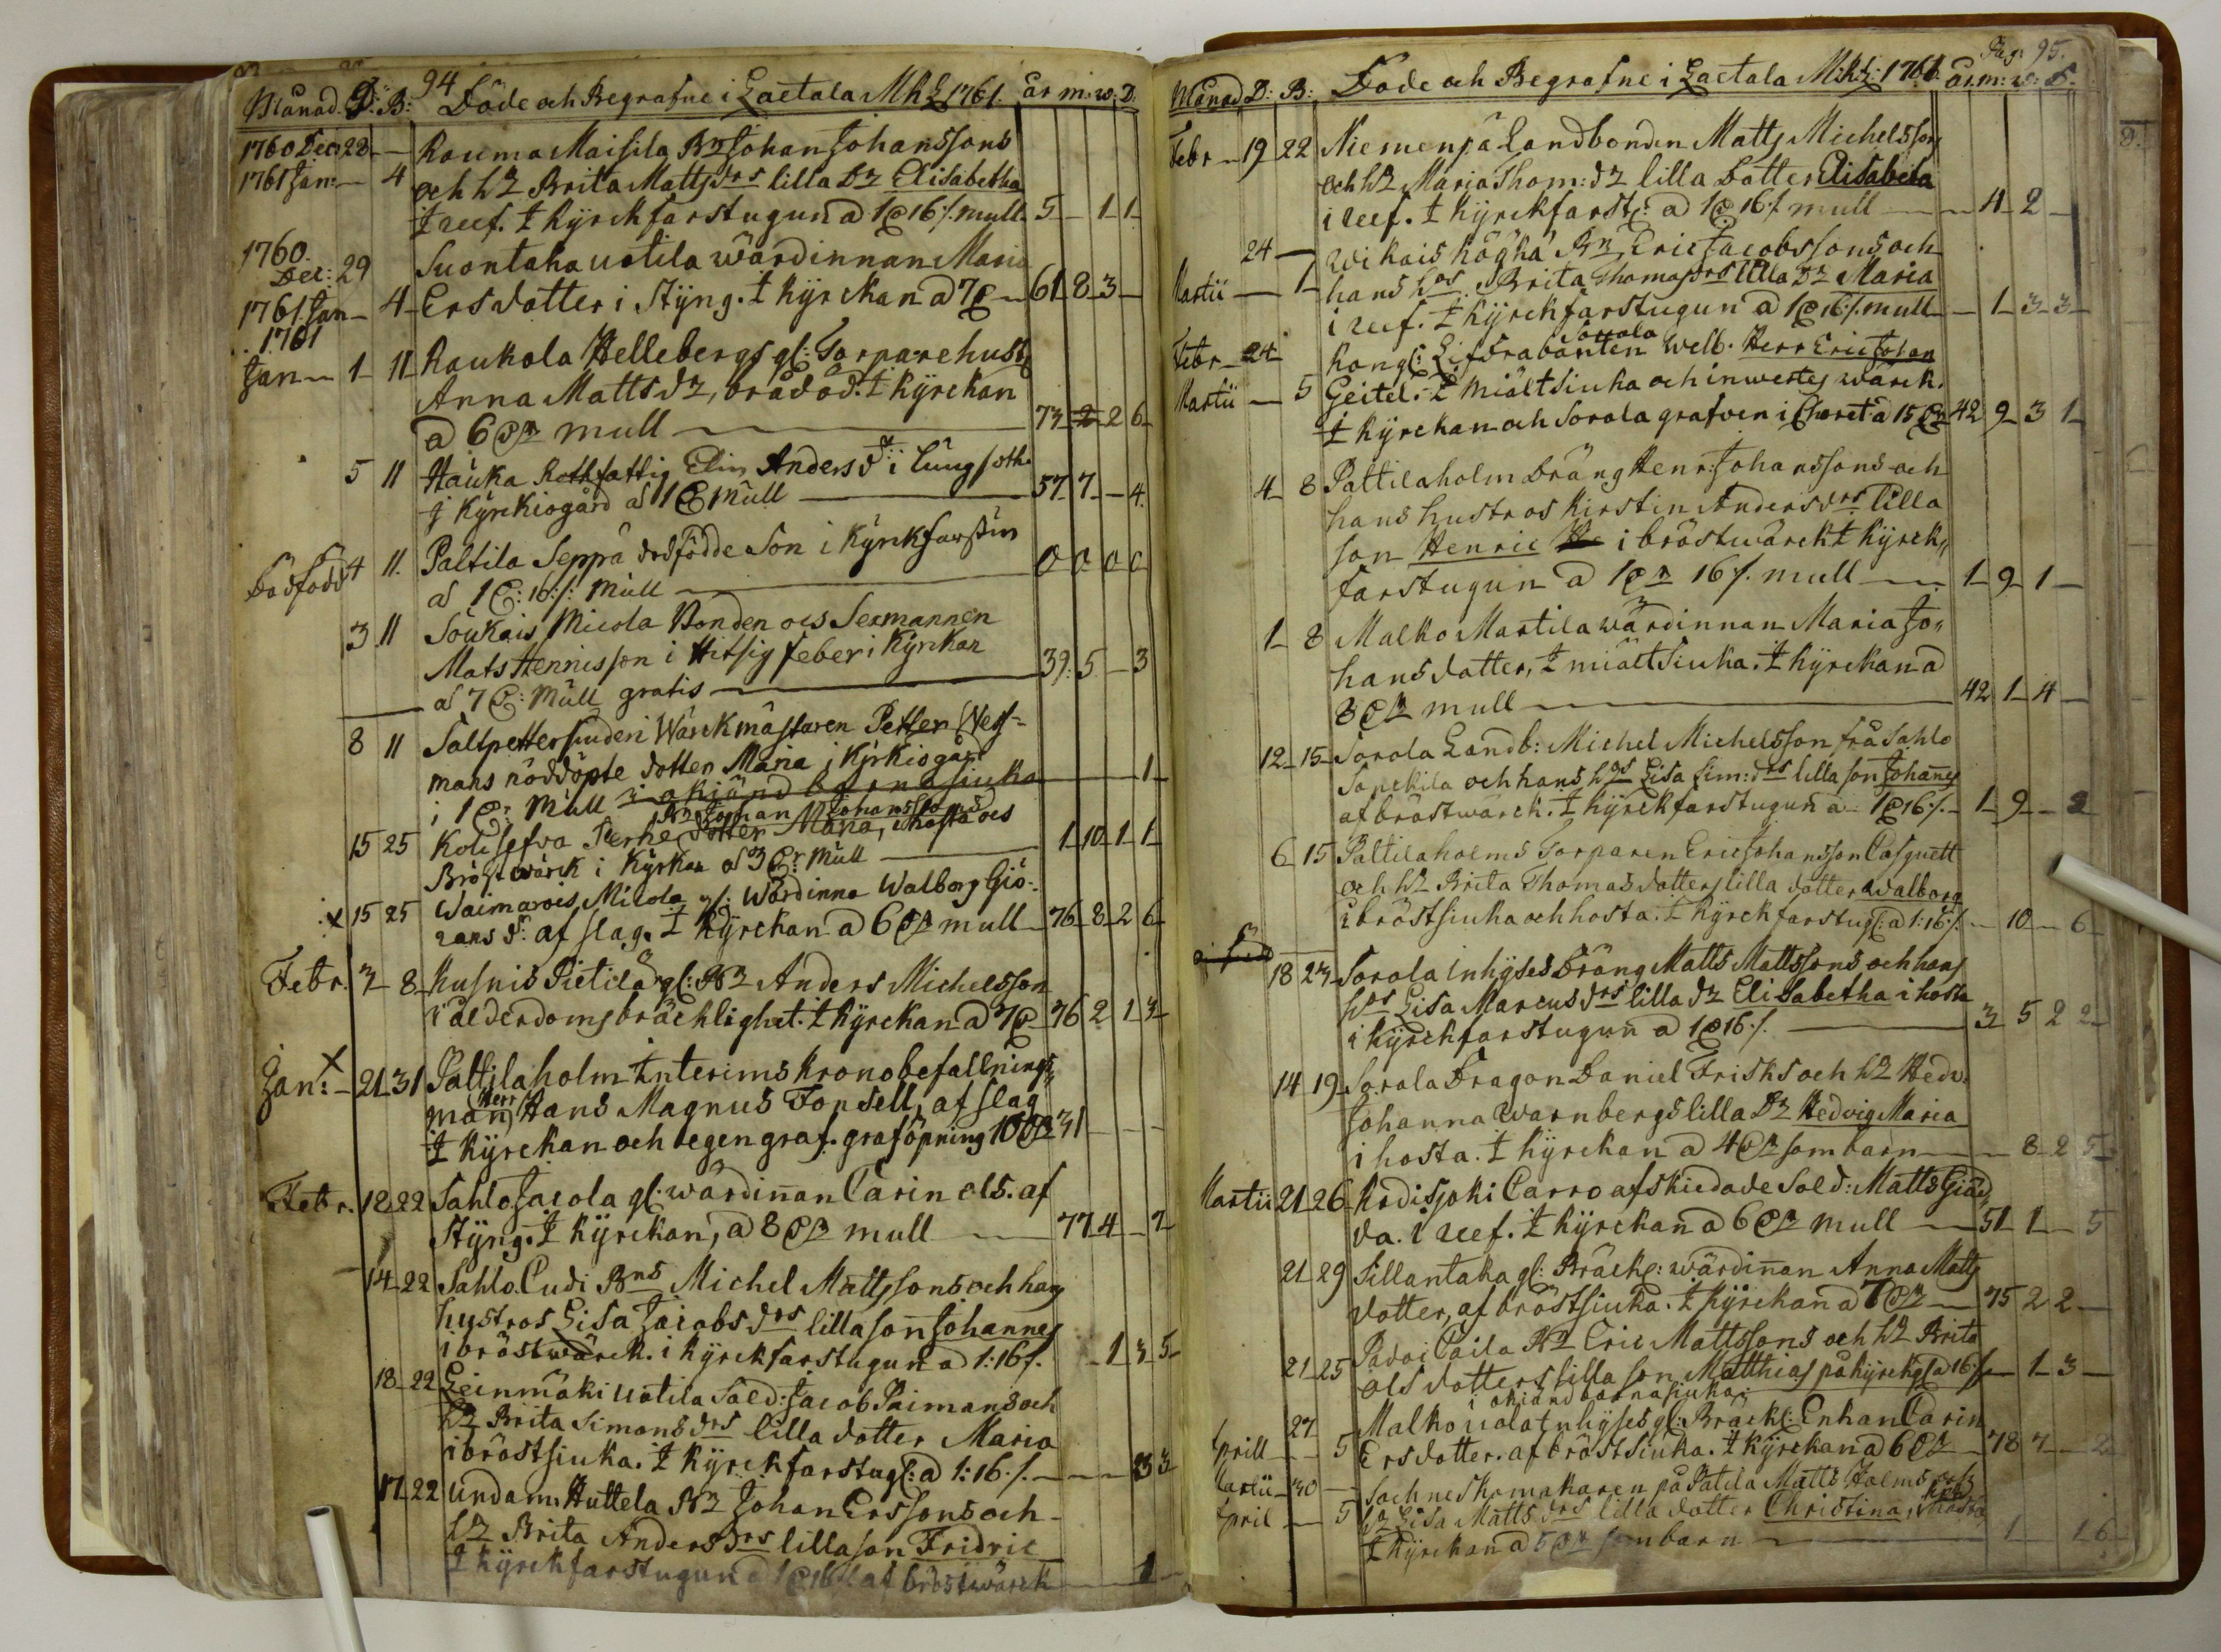 Månad. D: B: 94 Döde och Begrafne i Laetala MhL 1761. år m. w. D.
1760 Decr 28 — Rauma Maisila Bn Johan Johanssons
1761 Jan: — 4 och hz Brita Mattsdrs lilla Dz Elisabetha
i reef. I kÿrckfarstugun a 1 16/. mull 5 — 1 1
1760. Dec: 29 Suontaka Uotila wärdinnan Maria
1761 Jan — 4 Ersdotter i Stÿng. I kÿrckan a 7 — 61 8 3 —
1761
Jan — 1 11 Raukola Hellebergs gl: Torpare hust
Anna Mattsdz, brådöd. I kÿrckan
a 6 mull — 73 2 2 6
5 11 Hauka Rothfattig Elin Anders dr i lungsoth.
i Kÿrckiogård a 1 Mull — 57 7 — 4
Dödfödd 4 11. Paltila Seppä dödfödde Son i Kÿrckfarstun
a 1: 16:/: Mull — 0 0 0 0
3 11 Soukais Micola Bonden ocs Sexmannen
Mats Hennisson i Hitsig feber i Kÿrckan
a 7: Mull gratis — 39. 5 — 3
8 11 Saltpettersiuderi Wärckmästaren Petter Wess-
mans nöddöpte dotter Maria i Kÿrkiogård
i 1 Mull i okiänd barnasiuka — 1
Bn Johan Johanssons
15 25 Kolisefva Perhe Dotter Maria, i hosta ocs
Bröstwärck i Kÿrkan a 3 Mull — 1 10 1 1
x 15 25 Waimarois Micola gl: Wärdinna Walborg Giö-
rans d: af slag. I kÿrckan a 6 mull 76 8 2 6
Febr. 3 8 Kusnis Pietilä gl: Bn Anders Michelsson
i ålderdoms bräcklighet. I kÿrckan a 7 — 76 2 1 3
Jan: x 21 31 Paltilaholm Interims Kronobefallnings
man, Herr Hans Magnus Forsell, af slag
I kÿrckan och egen graf. graföpning 10 31 — — —
Febr. 18 22 Sahlo Jacola gl: wärdinnan Carin ols. af
Stÿng. I kÿrckan, a 8 mull — 77 4 — 2
14 22 Sahlo Cudi Bns Michel Mattssons och hans
hustros Lisa Jacobsdrs lilla son Johannes
i bröstwärck. i kÿrckfarstugun a 1:16/. — 1 3 5
18 22 Leinmäki Uotila Sold: Jacob Paimans och
hz Brita Simonsdrs lilla dotter Maria
i bröstsiuka. I kÿrckfarstug: a 1:16/. — 3 3
17 22 Undam. Huttela Bn Johan Erssons och
hz Brita Andersdrs lilla son Fridric
I kÿrckfarstugun a 1 16/. af bröstwärck — 1 —
Månad D: B: Döde och Begrafne i Laetala MhL: 1761. Pag: 95. år. m: w: D.
Febr — 19 22 Niemenpä Landbonden Matts Michelssons
och hz Maria Thom: dz lilla Dotter Elisabeta
i reef. I kÿrckfarst: a 1 16/. mull — 4 2 —
24 — Wikais Rögkä Bn Eric Jacobssons och
Martii — 1 hans hos Brita Thomasdrs lilla Dz Maria
i reef. I kÿrckfarstugun a 1 16/. mull — 1 3 3
Sorola
Febr — 24 Kongl: Lifdrabanten Welb. Herr Eric Johan
Martii — 5 Geitel. I miältsiuka och inwertes wärck.
I kÿrckan och Sorola grafven i Choret a 15 42 9 3 1
4 8 Paltilaholm Dräng Henr: Johanssons och
hans hustros Kirstin Andersdrs lilla
son Henric i bröstwärck I kÿrck
farstugun a 1 16/. mull — 1 9 1 —
1 8 Malko Martila wärdinnan Maria Jo-
hansdotter, I miältsiuka. I kÿrckan a
8 mull — 42 1 4 —
12 15 Sorola Landb: Michel Michelsson frå Sahlo
Sonckila och hans hos Lisa Sim: drs lilla son Johannes
af bröstwärck. I kÿrckfarstugun a 1 16/. — 1 9 — 2
6 15 Paltilaholms Torparen Eric Johansson Casquett
och hz Brita Thomasdotters lilla dotter Walborg
i bröstsiuka och hosta. I kÿrckfarstug: a 1:16/. — 10 — 6
18 23 Sorola Inhÿses Dräng Matts Mattssons och hans
hos Lisa Marcusdrs lilla dz Elisabetha i hosta
i kÿrckfarstugun a 1 16/. — 3 5 2 2
14 19 Sorola Dragon Daniel Frisks och hz Hedv.
Johanna Warnbergs lilla Dz Hedvig Maria
i hosta. I kÿrckan a 4 som barn — 8 2 5
Martii 21 26 Kodisjoki Carro afskiedade Sold: Matts Giäd-
da. i reef. I kÿrckan a 6 mull — 51 1 — 5
21 29 Sillantaka gl: Bräckl: wärdinnan Anna Matts
dotter, af bröstsiuka. I kÿrckan a 7 — 75 2 2 —
21 25 Padoi Caila Bn Eric Mattssons och hz Brita
olsdotters lilla son Matthias på kÿrckg a 16/. — 1 3 —
i okiänd barnasiuka.
27 Malko Uola Inhÿses gl: Bräckl: Enkan Carin
Aprill — 5 Ersdotter. af bröstsiuka. I kÿrckan a 6 — 78 7 — 2
Martii — 30 — Sochneskomakaren på Patila Matts Holms och
April — 5 hz Lisa Mattsdrs lilla dotter Christina, i hosta
I kÿrckan a 5 som barn — 1 — 1 6